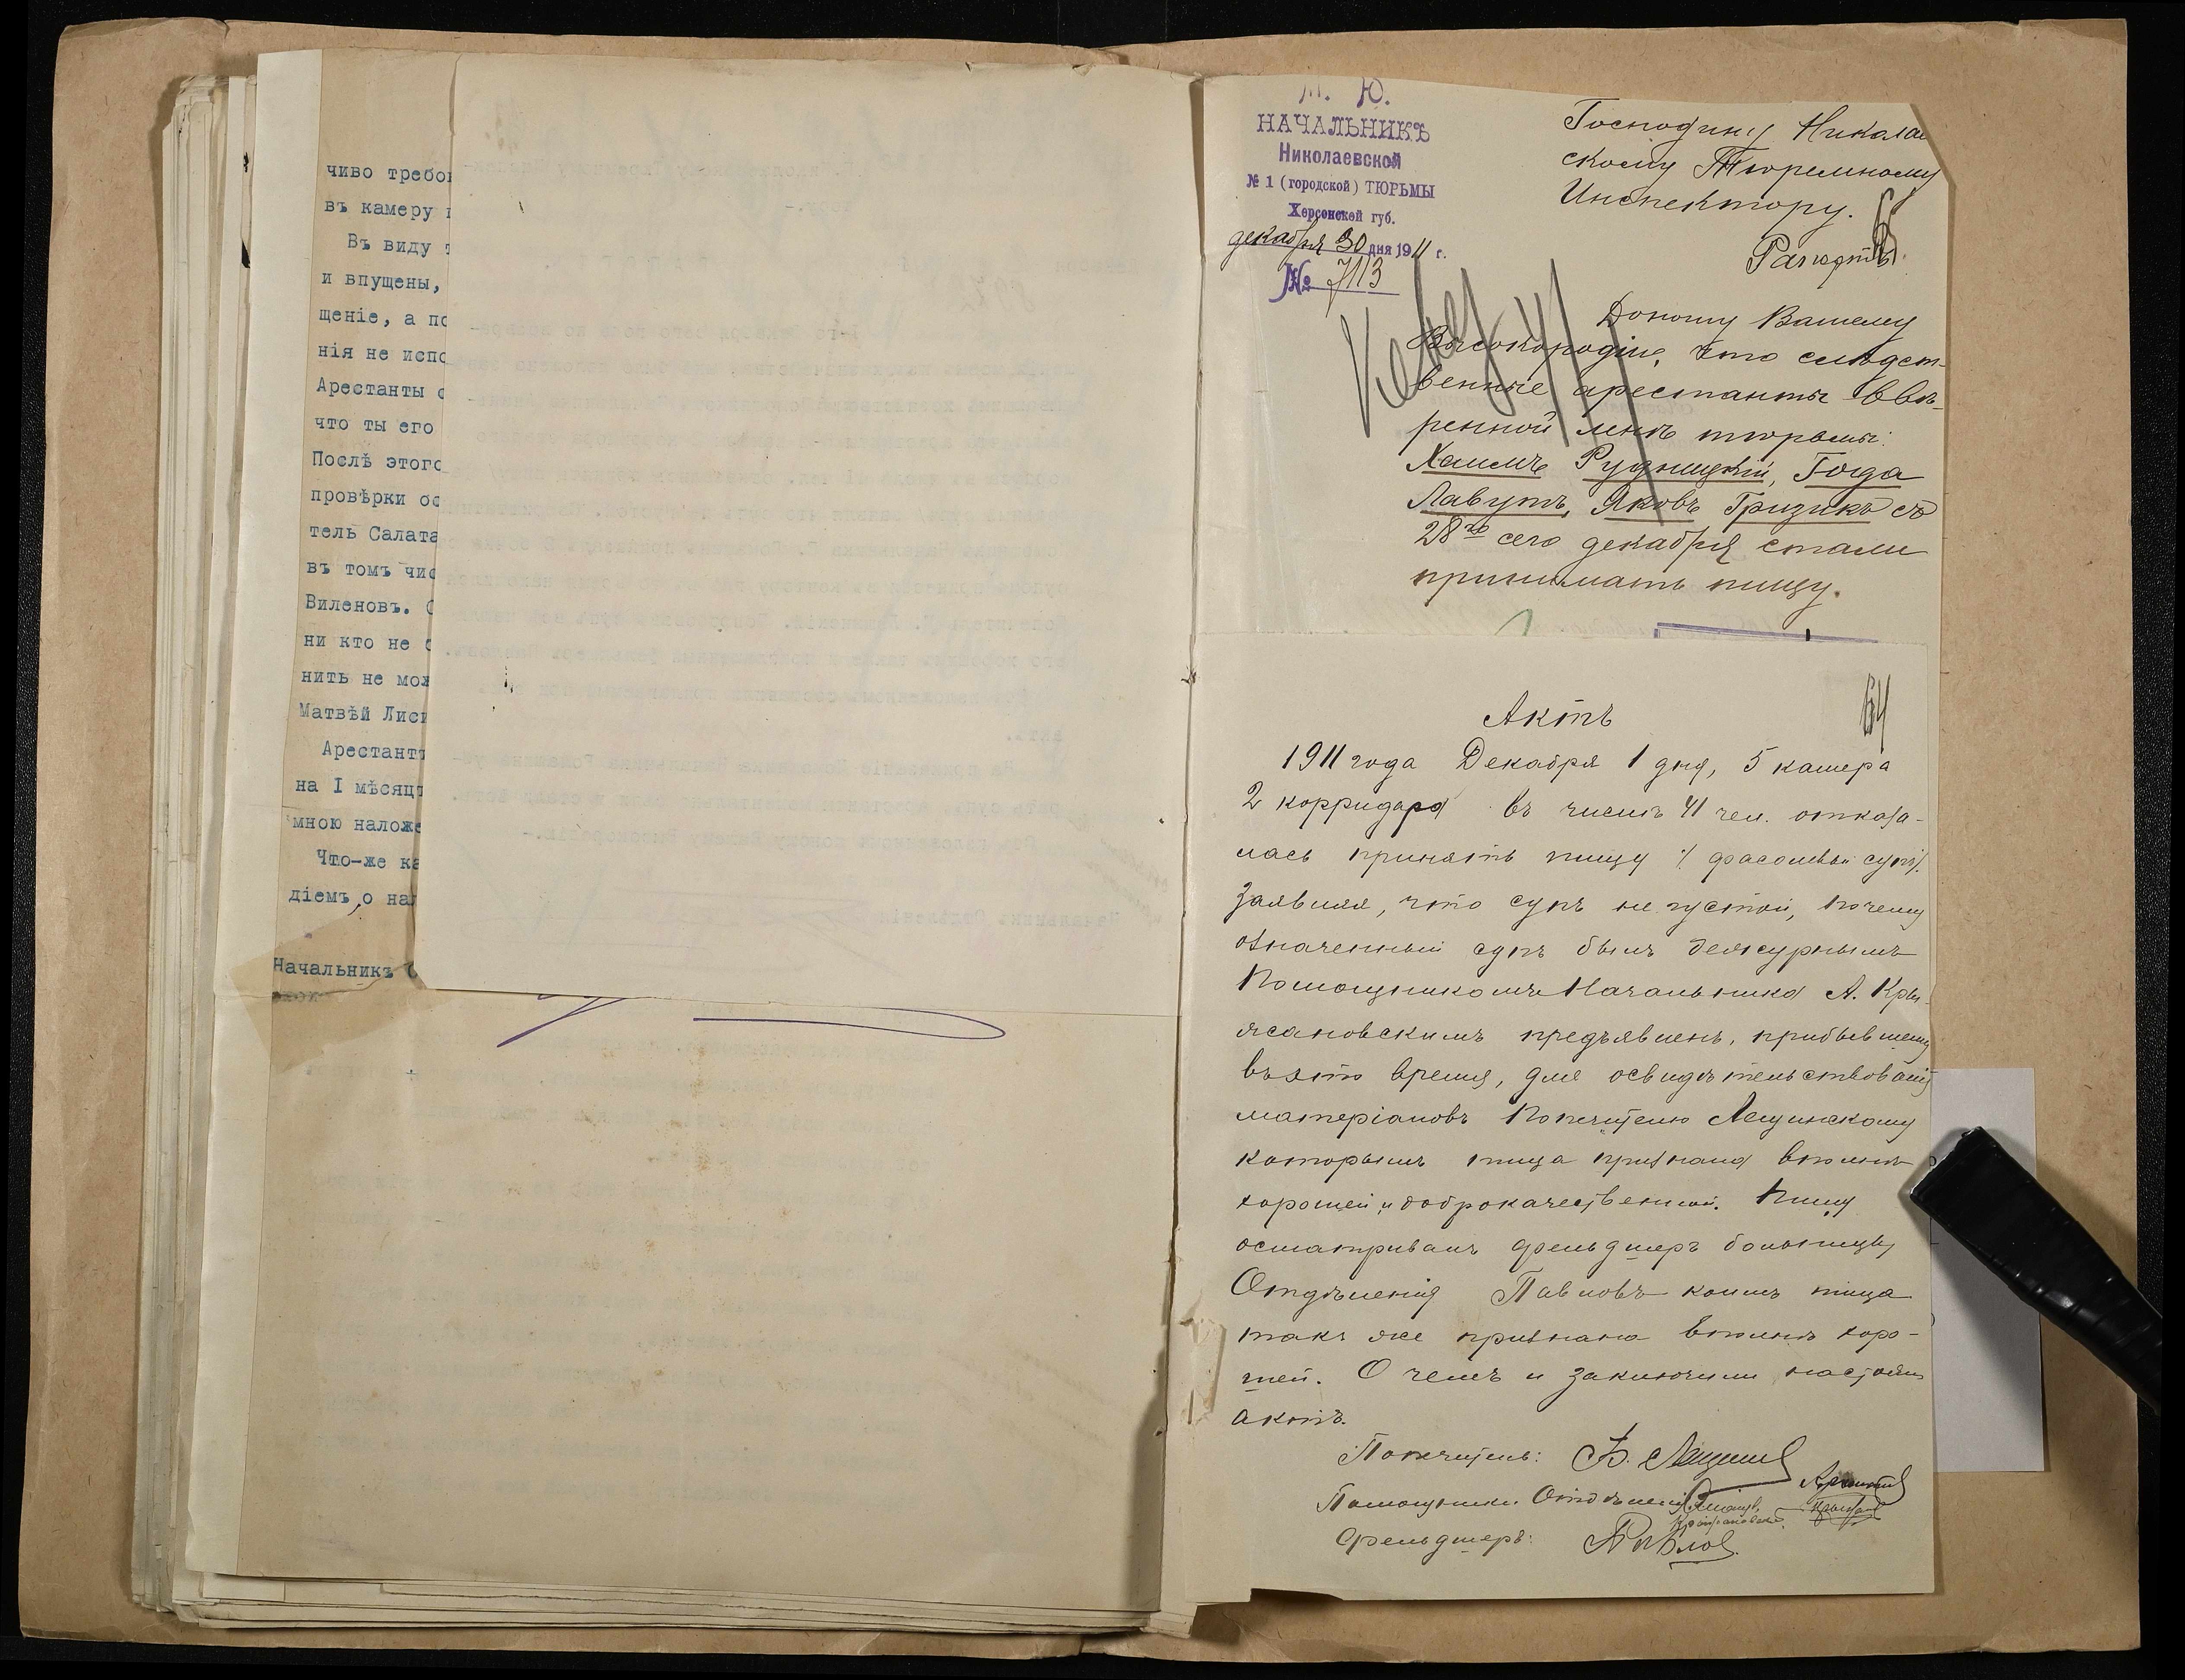 чиво требо
въ камеру
Въ виду
и впущены,
щеніе, а по
нія не испо
Арестанты
что ты его
Послѣ этого
провѣрки ос
тель Салата
въ томъ чис
Виленовъ.
ни кто не
нить не мож
Матвѣй Лиси
Арестант
на I мѣсяц
мною наложе
Что-же ка
діемъ, о на
Начальникъ
М. Ю.
НАЧАЛЬНИКЪ
Николаевской
№ 1 (городской) ТЮРЬМЫ
Херсонской губ.
декабря 30 дня 1911 г.
№ 7113
Господину Николаев
скому Тюремному
Инспектору.
Рапортъ.
Доношу Вашему
Высокородію, что следст-
венные арестанты ввѣ-
ренной менѣ тюрьмы:
Хаимъ Рудницкій, Гогда
Лавутъ, Яковъ Гризикъ съ
28го сего декабря стали
принимать пищу.
64
Актъ
1911 года Декабря 1 дня, 5 камера
2 корридора въ числѣ 41 чел. отказа-
лась принять пищу /фасолевый супъ/.
Заявляя, что супъ не густой, почему
означенный супъ былъ дежурнымъ
Помощникомъ Начальника А. Кры-
жановскимъ предъявленъ, прибывшему
въ это время, для освидѣтельствованія
матеріаловъ Попечителю Лещинскому
которымъ пища признана вполнѣ
хорошей и доброкачественной. Пищу
осматривалъ фельдшеръ больницы
Отдѣленія Павловъ коимъ пища
такъ же признана вполнѣ хоро-
шей. О чемъ и заключили настоящ
актъ.
Попечитель:
Помощники Отдѣленія
Крыжановскій
Фельдшеръ: Павловъ